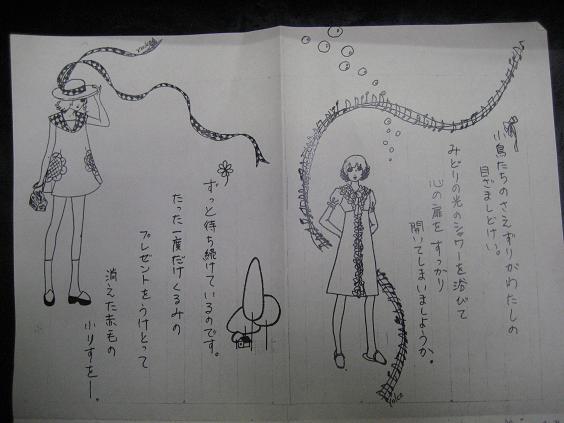 小鳥たちのさえずりがわたしの
目ざましどけい。
みどりの光のシャワーを浴びて
心の扉をすっかり
開いてしまいましょうか。
ずっと待ち続けているのです。
たった一度だけくるみの
プレゼントをうけとって
消えた赤毛の
小りすをー。